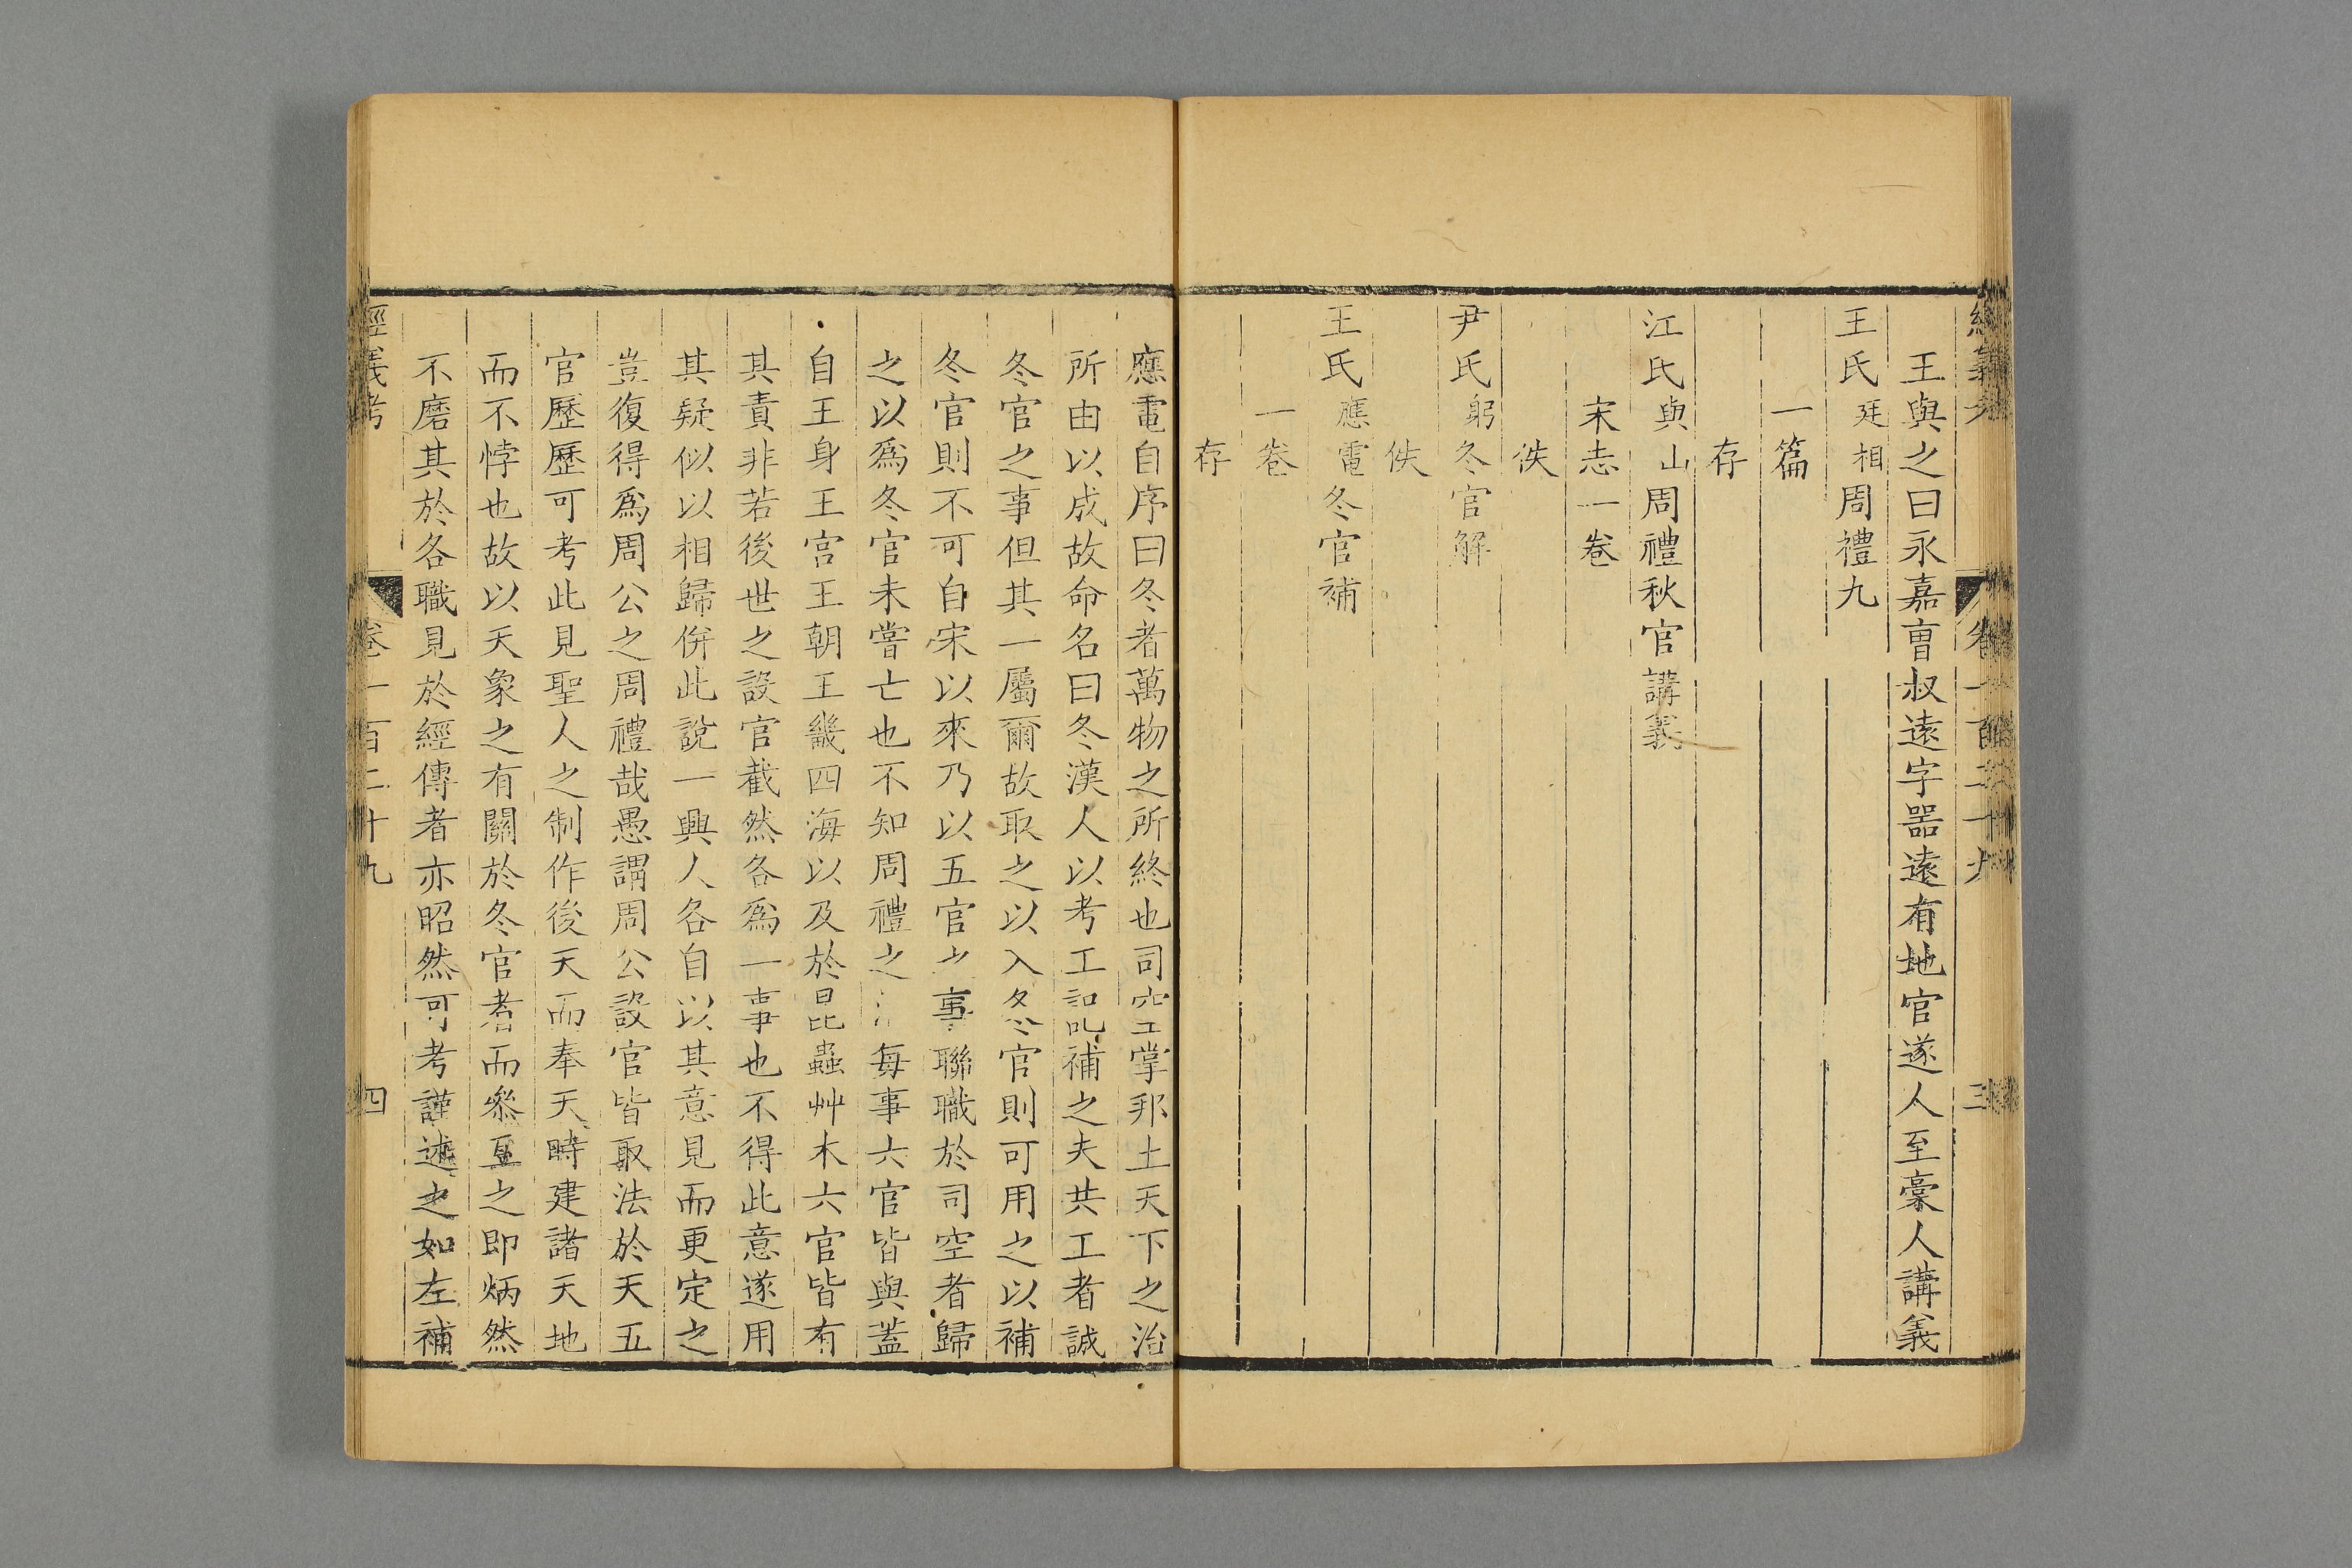 經義考 卷一百二十九 三
王與之曰永嘉曺叔遠字噐遠有地官遂人至稾人講義
王氏廷相周禮九
一篇
存
江氏與山周禮秋官講義
宋志一卷
佚
尹氏躬冬官解
佚
王氏應電冬官補
一卷
存
應電自序曰冬者萬物之所終也司空掌邦土天下之治
所由以成故命名曰冬漢人以考工記補之夫共工者誠
冬官之事但其一屬爾故取之以入冬官則可用之以補
冬官則不可自宋以來乃以五官之事聯職於司空者歸
之以爲冬官未嘗亡也不知周禮之每事六官皆與蓋
自王身王宫王朝王畿四海以及於昆蟲艸木六官皆有
其責非若後世之設官截然各爲一事也不得此意遂用
其疑似以相歸併此說一興人各自以其意見而更定之
豈復得爲周公之周禮哉愚謂周公設官皆取法於天五
官歷歷可考此見聖人之制作後天而奉天時建諸天地
而不悖也故以天象之有關於冬官者而叅互之即炳然
不磨其於各職見於經傳者亦昭然可考謹述之如左補
經義考 卷一百二十九 四